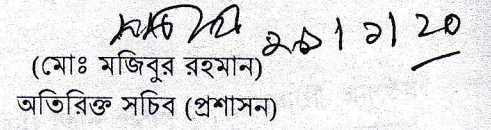 (মোঃ মজিবুর রহমান)
অতিরিক্ত সচিব (প্রশাসন)